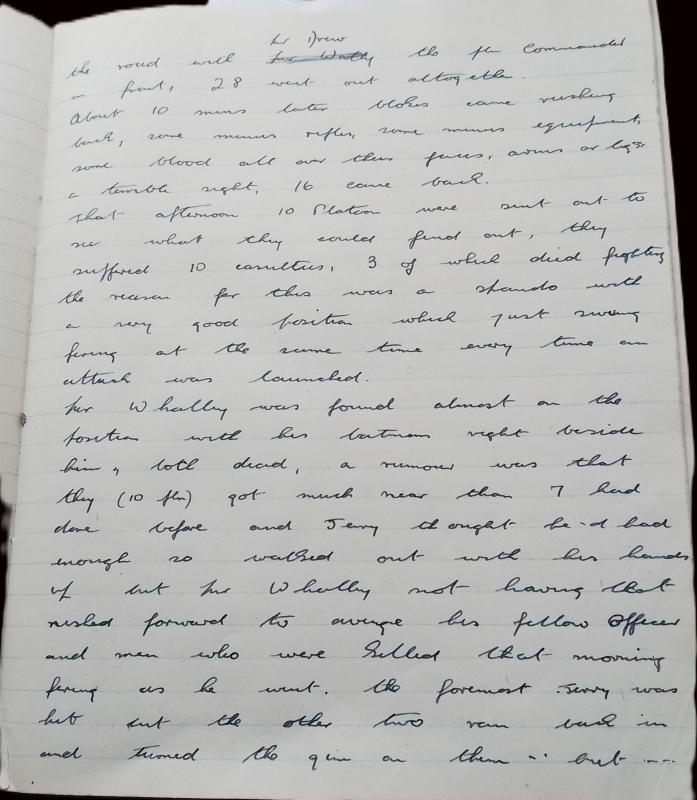 Mr Drew
the road with ~~Mr Whally~~ the pln Commander
in front, 28 went out altogether.
About 10 mins later blokes came rushing
back, some minus rifles, some minus equipment,
some blood all over their faces, arms or legs
a terrible sight, 16 came back.
That afternoon 10 Platoon were sent out to
see what they could find out, they
suffered 10 casulties, 3 of which died fighting
the reason for this was a spando with
a very good position which just swung
firing at the same time every time an
attack was launched.
Mr Whalley was found almost on the
position with his batman right beside
him, both dead, a rumour was that
they (10 pln) got much near than 7 had
done before and Jerry thought he-d had
enough so walked out with his hands
up but Mr Whalley not having that
rushed forward to avenge his fellow Officer
and men who were killed that morning
firing as he went. the foremost Jerry was
hit but the other two ran back in
and turned the gun on them -- but ---